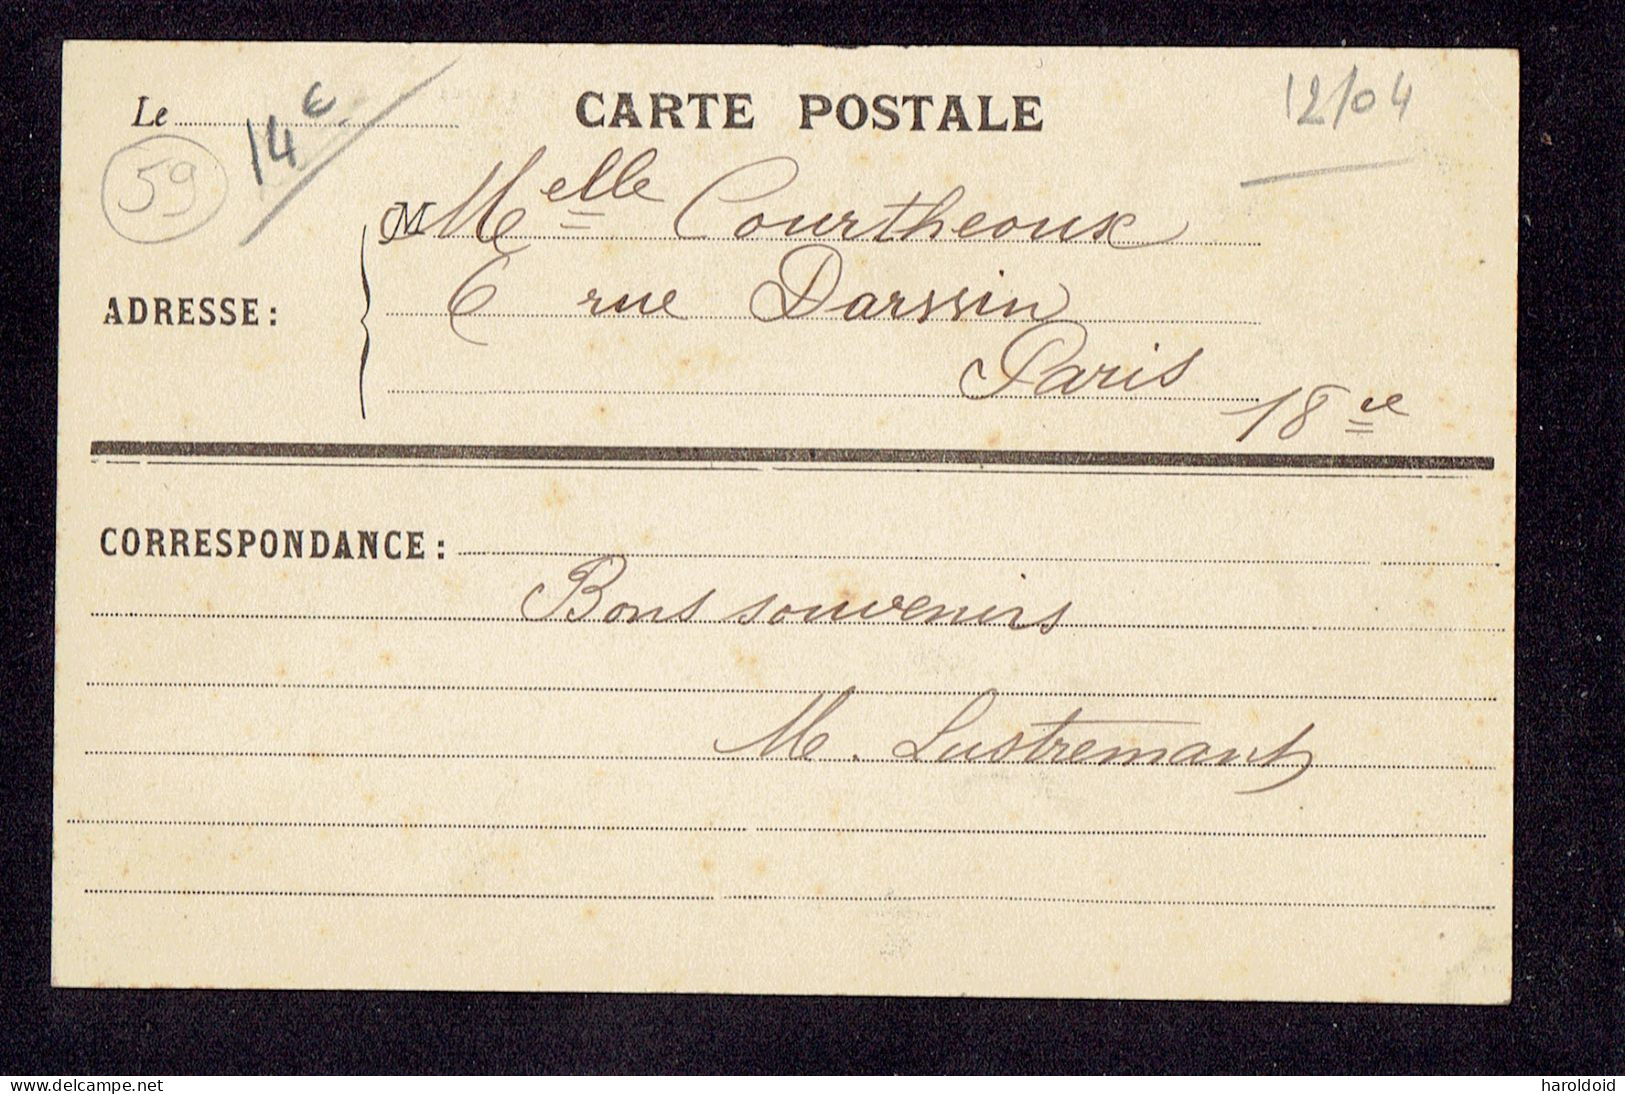 CARTE POSTALE
12/04
Le
14€
59
M Melle Courtheoux
ADRESSE :
6 rue Darssin
Paris
18e
CORRESPONDANCE :
Bons souvenirs
M. Lustremant
delcampe.net
haroldoid